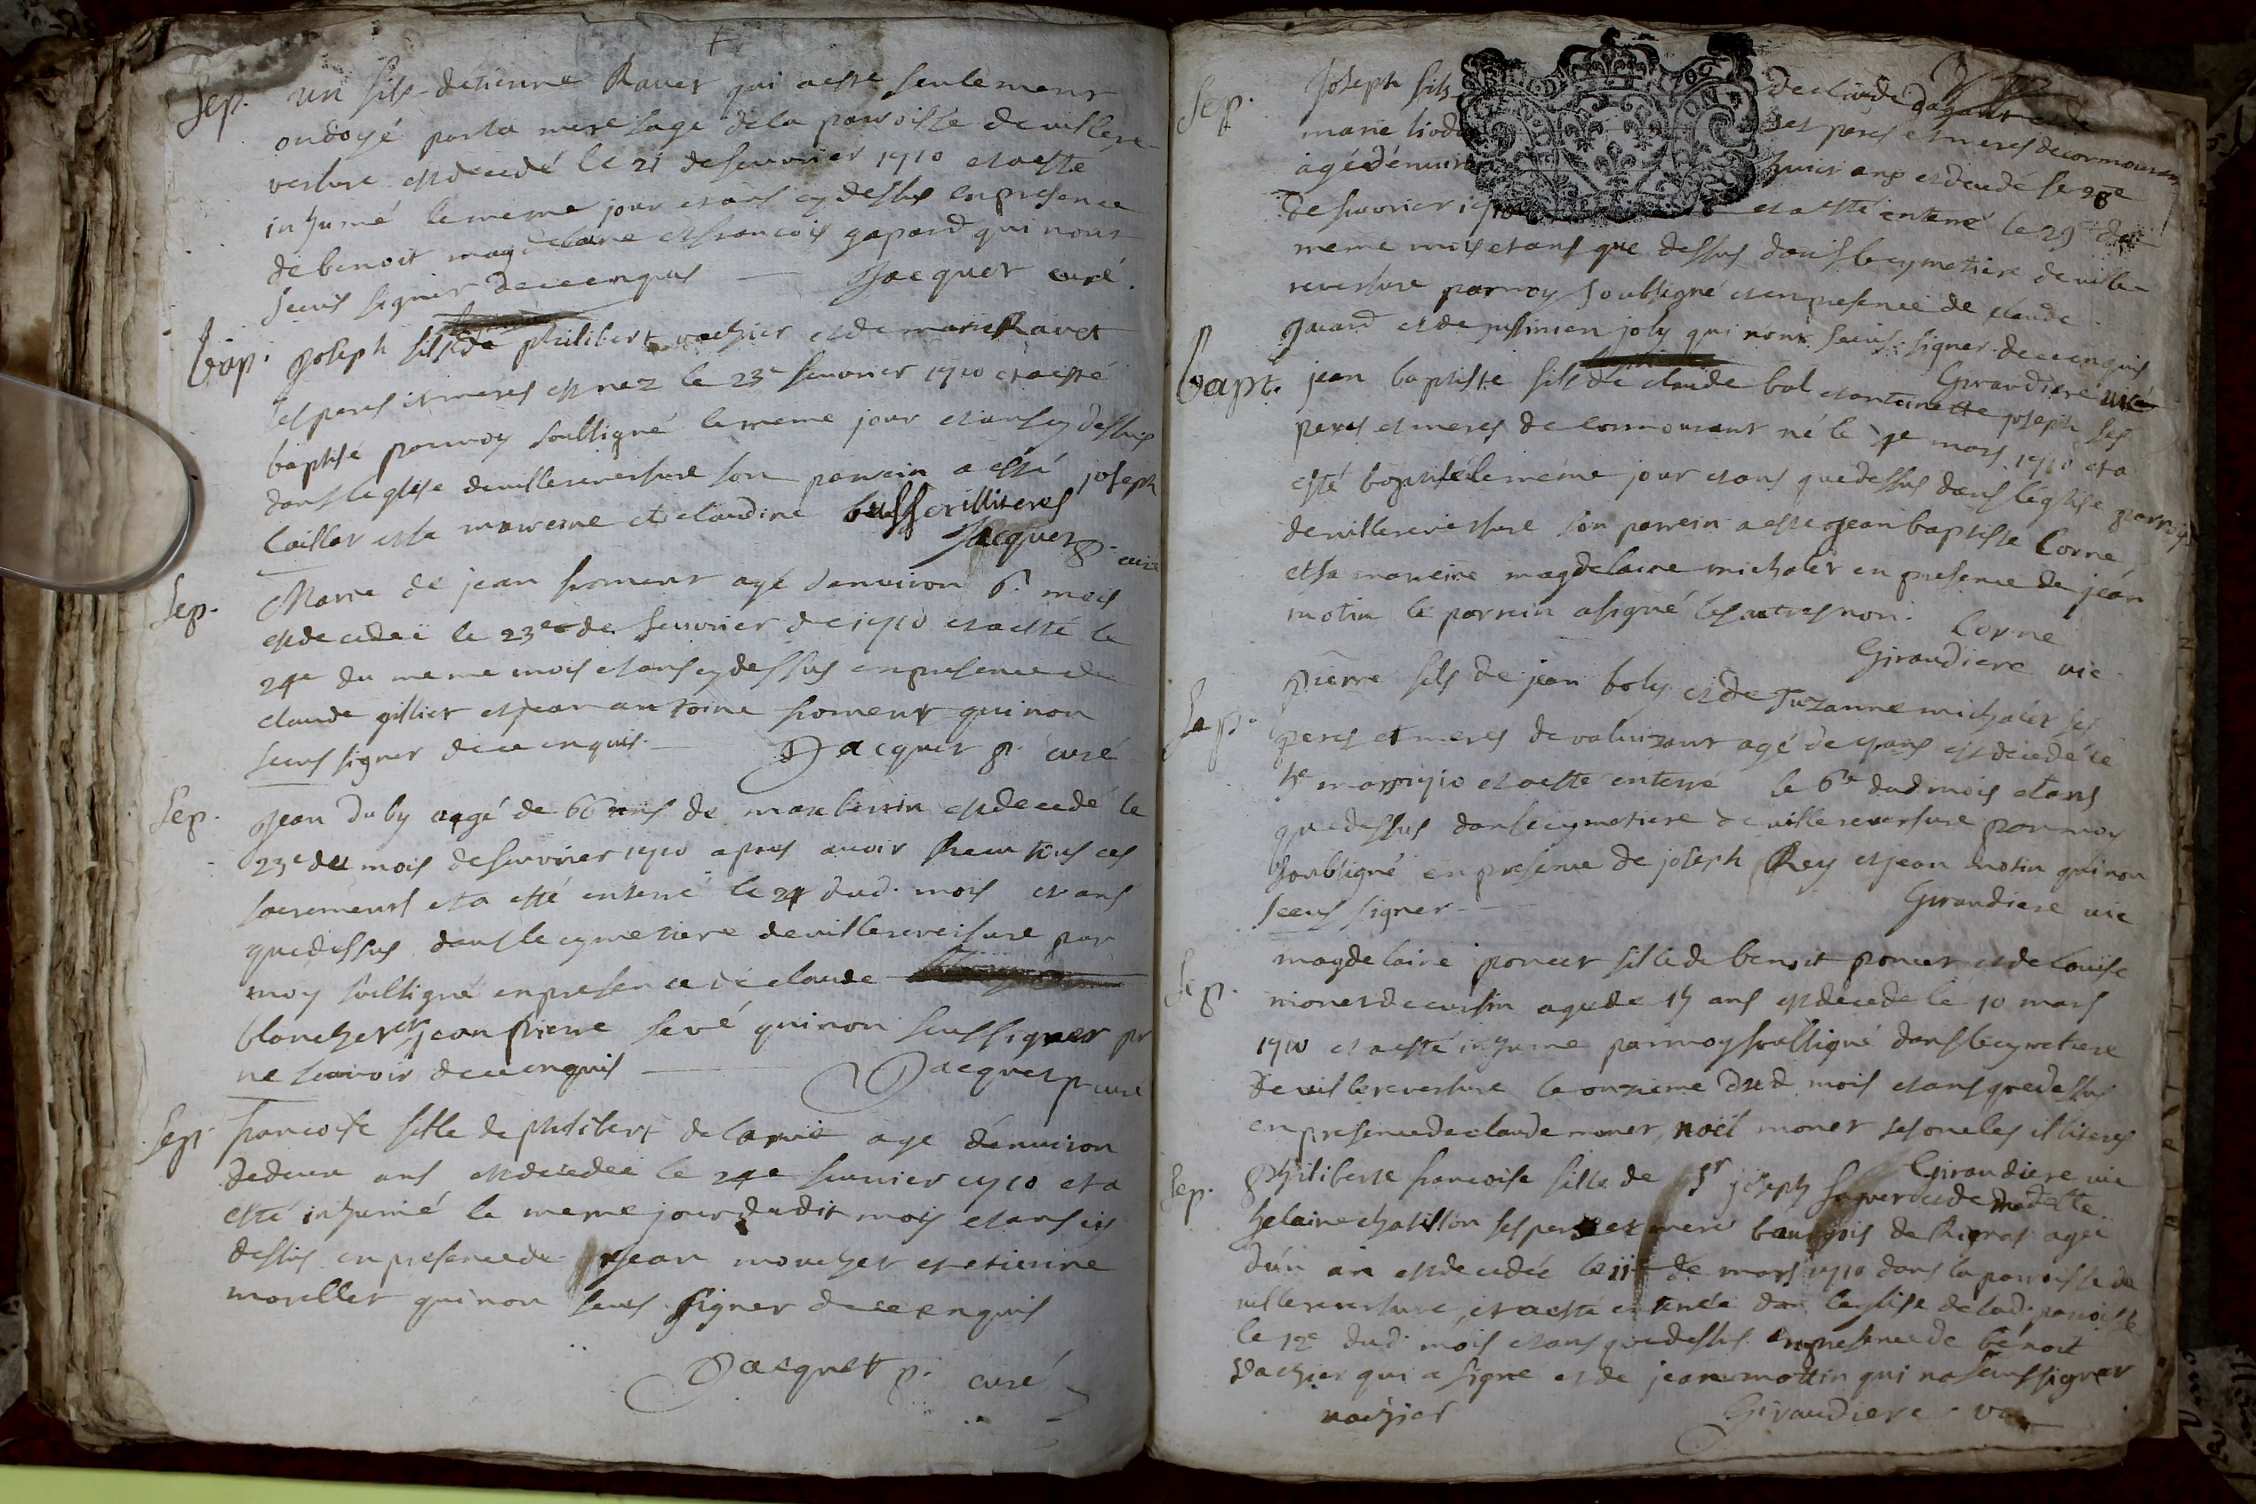 Sep. un fils detienne Ravet qui a esté seulement
ondoyé par la mere sage de la parroisse de villere
versure est decedé le 21 de feuvrier 1710 et a esté
inhumé le meme jour et ans cy dessus en presence
de benoit magdelaine et francois gapard qui nont
sceus signer de ce enquis Jacquet curé.
bap. joseph fils de philibert vachier et de marie Ravet
ses peres et meres est nez le 23e feuvrier 1710 et a esté
baptisé par moy soussigné le meme jour et ans cy dessus
dans leglise de villereversure son parrein a esté joseph
caillat et sa marreine et claudine illiteres
Jacquet p. curé
Sep. Marie de jean froment agé denviron 6. mois
est decedeé le 23e de feuvrier de 1710 et a esté le
24e du meme mois et ans cy dessus en presence de
claude gillier et jean antoine froment qui non
sceus signer de ce enquis. Jacquet p. curé
Sep. jean duby aagé de 66 ans de est decedé le
23e du mois de feuvrier 1710 apres avoir Receu tous ces
sacremens et a esté enterré le 24 dud. mois et ans
que dessus dans le cymetiere de villereversure par
moy soussigné en presence de claude
blanchet et jean pierre sevé qui non sceus signer pr
ne scavoir de ce enquis Jacquet p. curé
Sep. francoise fille de philibert age denviron
de deux ans est decedeé le 24e feuvrier 1710 et a
esté inhumé le meme jour dudit mois et ans cy
dessus en presence de jean mouchet et etienne
morellet qui non sceus signer de ce enquis
Jacquet p. curé
Sep. Joseph fils de claude
marie liod ses peres et meres de cormouran
agé denviron huict ans est decedé le 28e
de feuvrier 1710 et a esté enterré le 29e du
meme mois et ans que dessus dans le cymetiere de ville-
reversure par moy soubsigné et en presence de claude
guard et de joly qui nont sceus signer de ce enquis
Girandiere vic
bapt. jean baptiste fils de claude bal et antoinette joseph ses
peres et meres de cormourant né le mars 1710 et a
esté baptisé le meme jour et ans que dessus dans léglise parroiss
de villereversure son parrein a esté jean baptiste Corne
et sa marreine magdelaine michalet en presence de jean
motin le parrein a signé les autres non. Corne
Girandiere vic
Sep. pierre fils de jean boly et de Suzanne michalet ses
peres et meres de agé de ans est decedé le
mars 1710 et a esté enterré le 6e dud mois et ans
que dessus dans le cymetiere de villereversure par moy
soubsigné en presence de joseph Rey et jean motin qui non
sceus signer Girandiere vic
Sep. magdelaine poncet fille de benoit poncet et de Louise
monet de cursin agee de 15 ans est decedé le 10 mars
1710 et a esté inhumé par moy soussigné dans le cymetiere
de villereversure le onzieme dud mois et ans que dessus
en presence de claude monet, noël monet ses oncles illiteres
Girandiere vic
Sep. Philiberte francoise fille de Sr joseph et de
helaine chatillon ses pere et mere bourgois de agee
dun an est decedée le 11e de mars 1710 dans la parroisse de
villereversure, et a esté enterrée dans leglise de lad. parroisse
le 12e dud. mois et ans que dessus en presence de benoit
vachier qui a signe et de jean mottin qui na sceus signer
vachier Girandiere vic